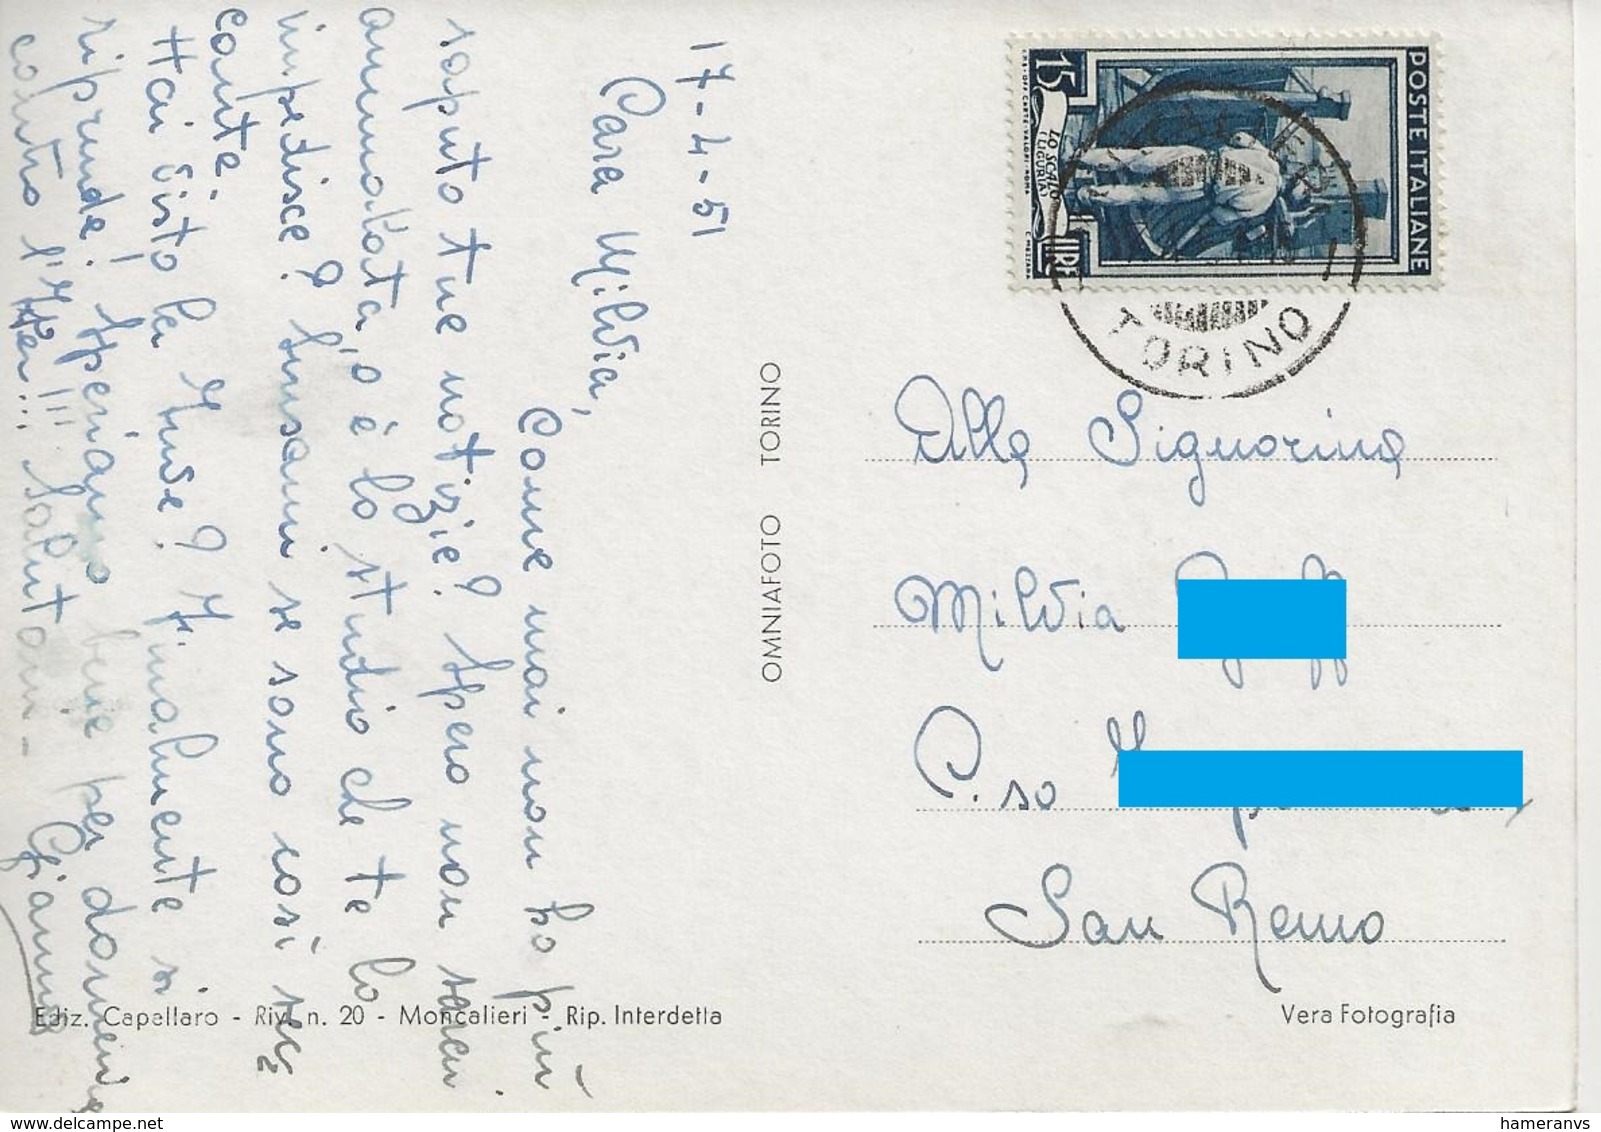 17-4-51
Cara Milvia,
Come mai non ho più
saputo tue notizie? Spero non sarai
ammalata, o è lo studio che te lo
impedisce? Sansami se sono così sec
cante.
Hai visto la Juve? Finalmente si
riprende! Speriamo bene per domenica
contro l'Inter!!! Salutoni -
Gianna
POSTE ITALIANE
15
LO SCALO
(LIGURIA)
LIRE
TORINO
OMNIAFOTO TORINO
Alla Signorina
Milvia
C.so
San Remo
Ediz. Capellaro - Riv. n. 20 - Moncalieri - Rip. Interdetta
Vera Fotografia
hameranvs